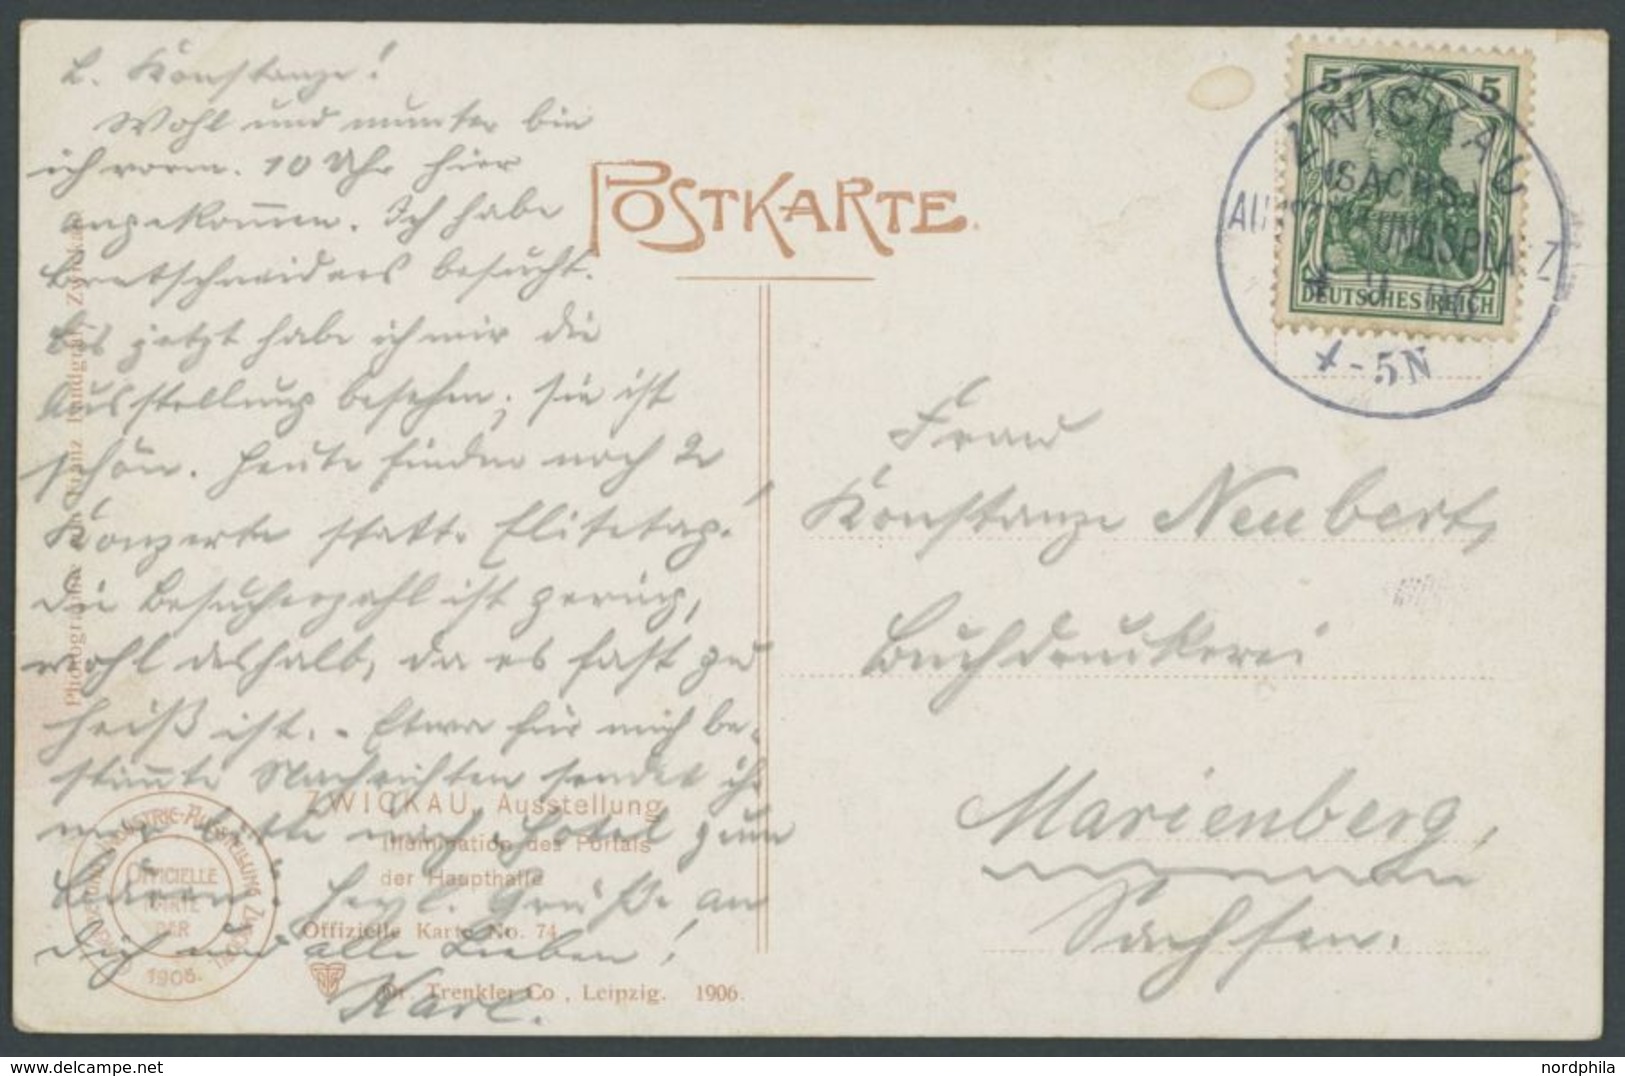 L. Konstanze!
Wohl und munter bin
ich vorm. 10 Uhr hier
angekom̅en. Ich habe
Bretschneiders besucht.
Bis jetzt habe ich mir die
Ausstellung besehen; sie ist
schön. Heute finden noch 2
Konzerte statt. Elitetag!
Die Besucherzahl ist gering,
wohl deshalb, da es fast zu
heiß ist. - Etwa für mich be-
stim̅te Nachrichten sendet ihr
mir bitte nach „Hotel zum
Bären". Herzl. Grüße an
Dich und alle Lieben!
Karl.
POSTKARTE
5 5
DEUTSCHES REICH
ZWICKAU
(SACHS.)
AUSSTELLUNGSPLATZ
4-5N
Frau
Konstanze Neubert,
Buchdruckerei
Marienberg,
Sachsen.
ZWICKAU, Ausstellung
Illumination des Portals
der Haupthalle
Offizielle Karte No. 74
Dr. Trenkler Co., Leipzig. 1906.
OFFICIELLE
KARTE
DER
1906.
nordphila